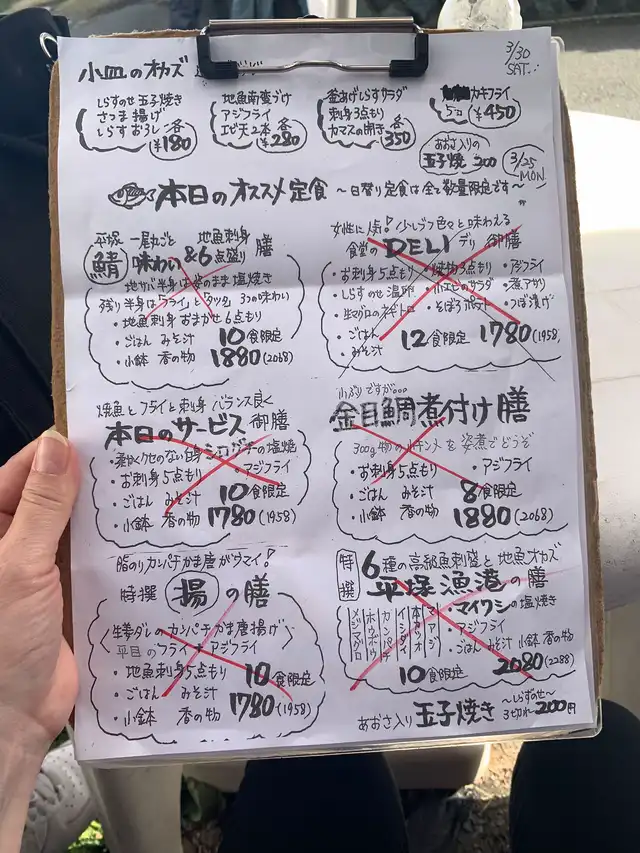 3/30
SAT.
小皿のオカズ
しらすのせ 玉子焼き
さつま揚げ
しらすおろし 各
¥180
地魚南蛮づけ
アジフライ
エビ天2本 各
¥280
釜あげしらすサラダ
刺身3点もり
カマスの開き 各
350
カキフライ
5コ ¥450
あおさ入りの
玉子焼 200
3/25
MON.
本日のオススメ定食 ～日替り定食は全て数量限定です～
平塚 一尾丸ごと 地魚刺身
鯖 味わい &6点盛り 膳
地サバ半身は姿のまま 塩焼き
残り半身は「フライ」と「タツタ」 3つの味わい
・地魚刺身 おまかせ6点もり
・ごはん みそ汁 10食限定
・小鉢 香の物 1880(2068)
女性に人気! 少しづつ色々と味わえる
食堂の DELI デリ 御膳
・お刺身5点もり ・焼物3点もり ・アジフライ
・しらすのせ温卵 ・小エビのサラダ ・煮アサリ
・生マグロのネギトロ ・そぼろポテト ・つぼ漬け
・ごはん
・みそ汁 12食限定 1780(1958)
焼魚とフライと刺身 バランス良く
本日のサービス御膳
・シログチの塩焼
・お刺身5点もり アジフライ
・ごはん みそ汁 10食限定
・小鉢 香の物 1780(1958)
小ぶりですが…
金目鯛煮付け膳
300g物のキンメを姿煮でどうぞ
・お刺身5点もり ・アジフライ
・ごはん みそ汁 8食限定
・小鉢 香の物 1880(2068)
脂のりカンパチかま唐がウマイ!
特撰 揚の膳
〈生姜ダレのカンパチかま唐揚げ〉
平目のフライ アジフライ
・地魚刺身5点もり 10食限定
・ごはん みそ汁
・小鉢 香の物 1780(1958)
特撰 6種の高級魚刺盛と地魚オカズ
平塚漁港の膳
マアジ
本
イシダイ
カンパチ
ホウボウ
メジマグロ
・マイワシの塩焼き
・アジフライ
・ごはん みそ汁 小鉢 香の物
10食限定 2080(2288)
あおさ入り 玉子焼き ～しらすのせ～
3切れ 200円